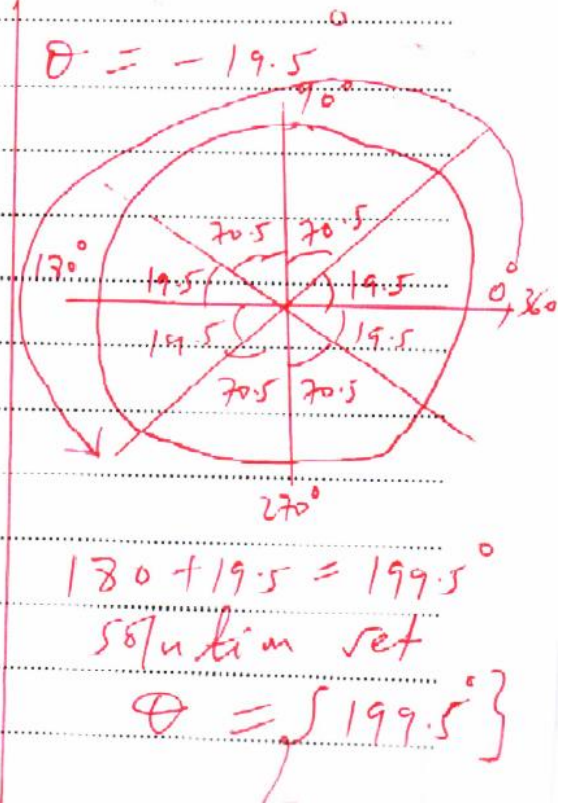 θ = - 19.5°
90°
70.5 70.5
180° 19.5 19.5 0° 360
19.5 19.5
70.5 70.5
270°
180 + 19.5 = 199.5°
solution set
θ = { 199.5° }